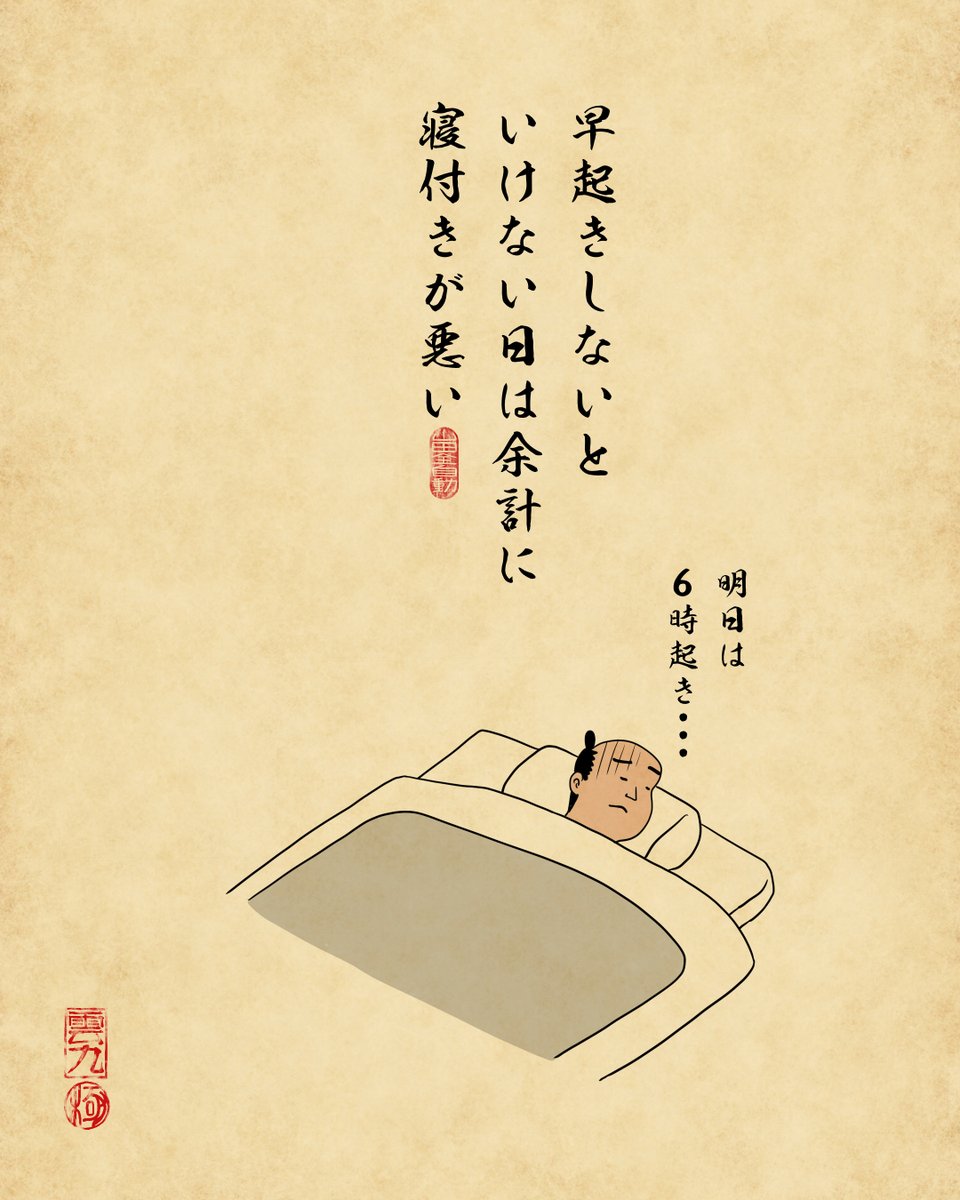 早起きしないと
いけない日は余計に
寝付きが悪い
明日は
6時起き・・・